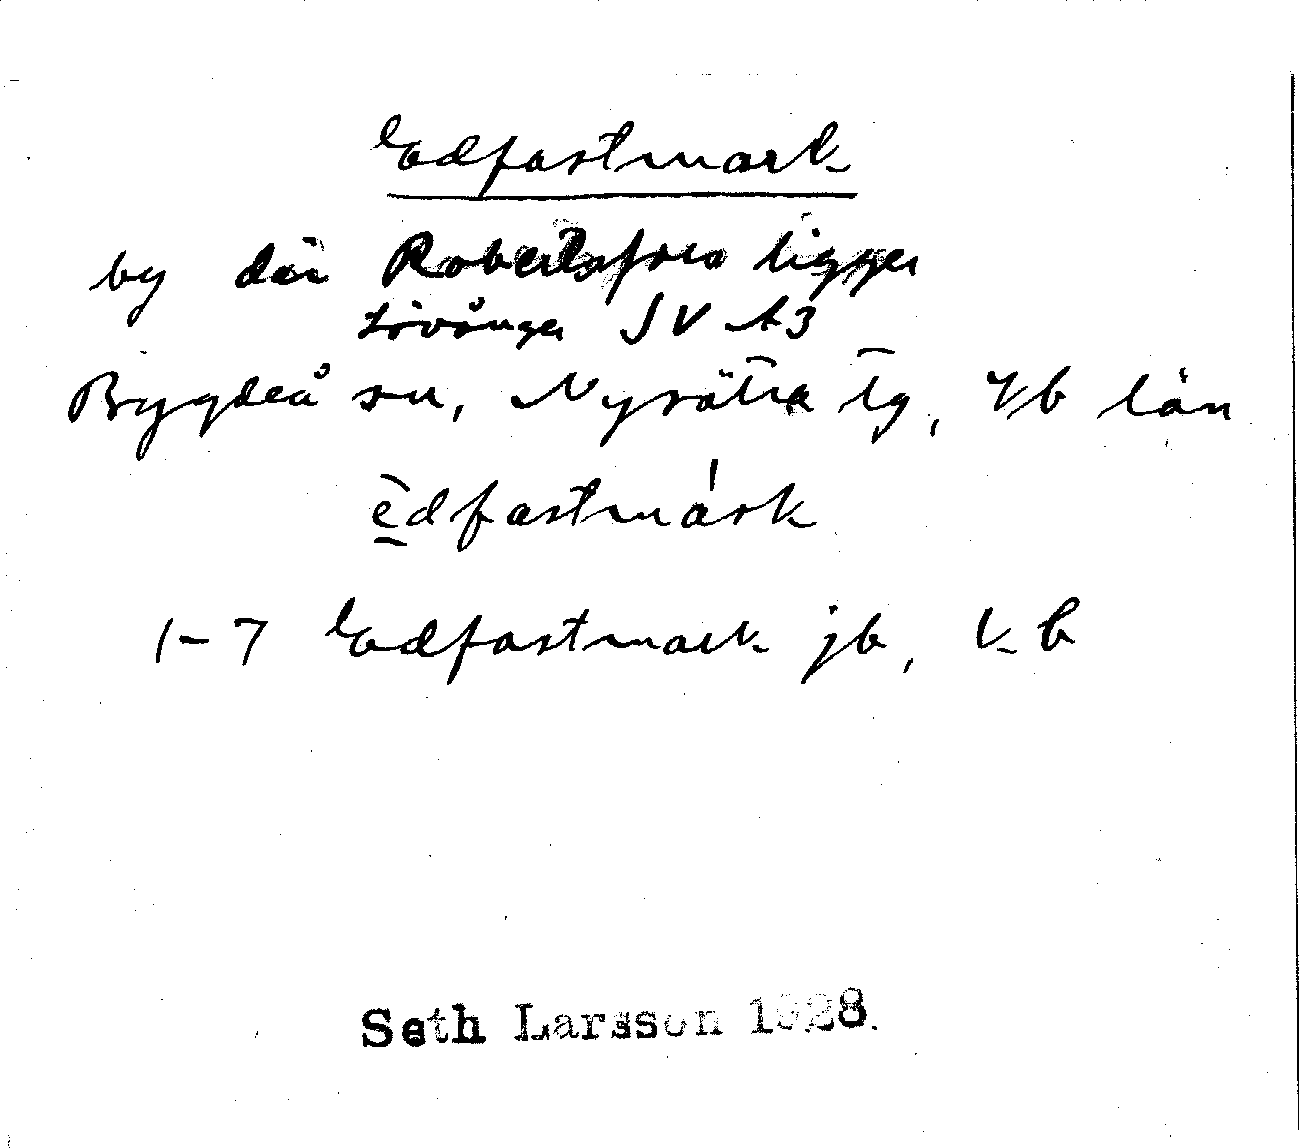 Edfastmark
by där Robertsfors ligger
Lövånger SV A3
Bygdeå sn, Nysätra tg, Vb län
ēdfastmársk
1-7 Edfastmark jb, kb
Seth Larsson 1928.